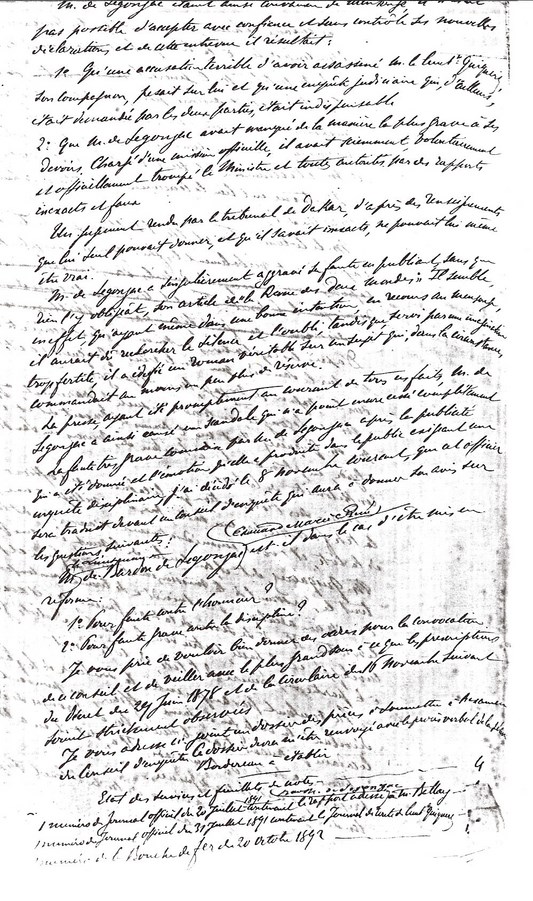 M. de Segonzac étant ainsi convaincu de mensonge, il n'était
pas possible d'accepter avec confiance et sans contrôle ses nouvelles
déclarations, et de cette enquête il résultait :
1º Qu'une accusation terrible d'avoir assassiné M. le Lieut. Quiquerez,
son compagnon, pesait sur lui et qu'une enquête judiciaire qui, d'ailleurs,
était demandée par les deux parties, était indispensable
2º Que M. de Segonzac avait manqué de la manière la plus grave à ses
devoirs. Chargé d'une mission officielle, il avait sciemment, volontairement
et officiellement trompé le Ministre et toutes autorités par des rapports
inexacts et faux
Un jugement rendu par le tribunal de Dakar, d'après des renseignements
que lui seul pouvait donner, et qu'il savait inexacts, ne pouvait lui même
être vrai.
M. de Segonzac a singulièrement aggravé sa faute en publiant, sans que
rien l'y obligeât, son article de la Revue des Deux Mondes. Il semble
en effet, qu'ayant même dans une bonne intention, eu recours au mensonge,
il aurait dû rechercher le silence et l'oubli, tandis que, servi par une imagination
trop fertile, il a édifié un roman véritable sur un sujet qui, dans la circonstance,
commandait au moins un peu plus de réserve.
La presse, ayant été promptement au courant de tous ces faits, M. de
Segonzac a ainsi causé un scandale qui n'a point encore cessé complètement
La faute très grave commise par M. de Segonzac après la publicité
qui a été donnée et l'émotion qu'elle a produite dans le public exigeant une
enquête disciplinaire, j'ai décidé le 8 Novembre courant, que cet officier
sera traduit devant un conseil d'enquête qui aura à donner son avis sur
les questions suivantes :
(Edmond Marie René)
M. de Bardon de Segonzac est-il dans le cas d'être mis en
réforme :
1º Pour faute contre l'honneur ?
2º Pour faute grave contre la discipline ?
Je vous prie de vouloir bien donner des ordres pour la convocation
de ce conseil et de veiller avec le plus grand soin à ce que les prescriptions
du décret du 29 Juin 1878 et de la circulaire du 16 Novembre suivant
soient strictement observées
Je vous adresse ci-joint un dossier des pièces à soumettre à l'examen
du Conseil d'enquête. Ce dossier devra m'être renvoyé avec le procès verbal de la séance
Bordereau à établir
Etat des services et feuillets de notes 4
1 numéro du Journal officiel du 20 Juillet 1891 contenant le rapport adressé à M. Ballay
1 numéro du Journal officiel du 31 Juillet 1891 contenant le Journal de route de Lieut Quiquerez
1 numéro de la Bouche de fer du 20 octobre 1892